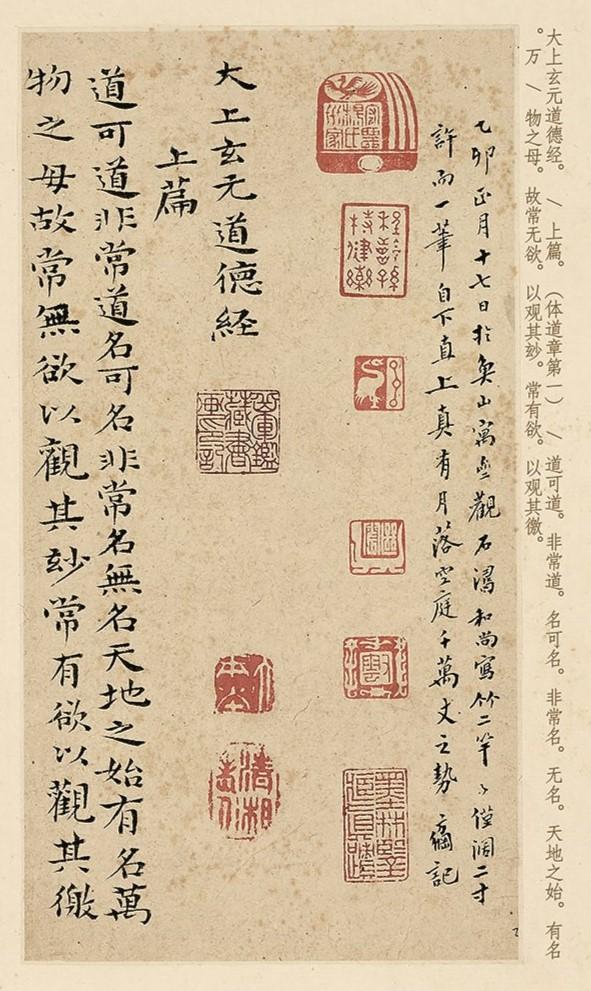 大上玄元道德经。 \ 上篇。（体道章第一） \ 道可道。非常道。名可名。非常名。无名。天地之始。有名
。万 \ 物之母。故常无欲。以观其玅。常有欲。以观其徼。
乙卯正月十七日於山寓觀石濤和尚寫竹二竿々僅闊二寸
許而一筆自下直上真有月落空庭千萬丈之勢 記
大上玄元道德経
上篇
道可道非常道名可名非常名無名天地之始有名萬
物之母故常無欲以觀其玅常有欲以觀其徼
清湘老人